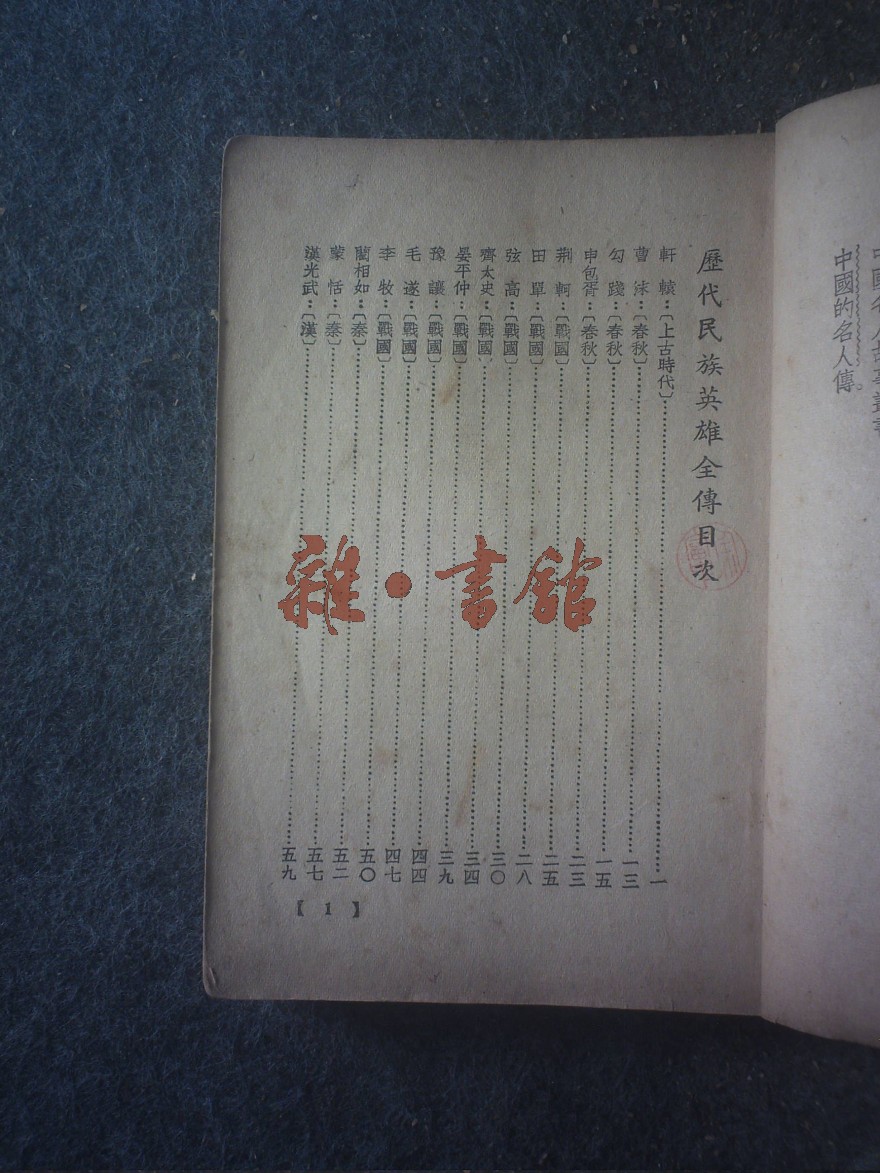 中國的名人傳。
歷代民族英雄全傳目次
軒轅：〔上古時代〕一
曹沫：〔春秋〕一三
勾踐：〔春秋〕一五
申包胥：〔春秋〕二三
荆軻：〔戰國〕二五
田單：〔戰國〕二八
弦高：〔戰國〕三〇
齊太史：〔戰國〕三四
晏平仲：〔戰國〕三九
豫讓：〔戰國〕四四
毛遂：〔戰國〕四七
李牧：〔戰國〕五〇
藺相如：〔秦〕五二
蒙恬：〔秦〕五七
漢光武：〔漢〕五九
【1】
雜·書館